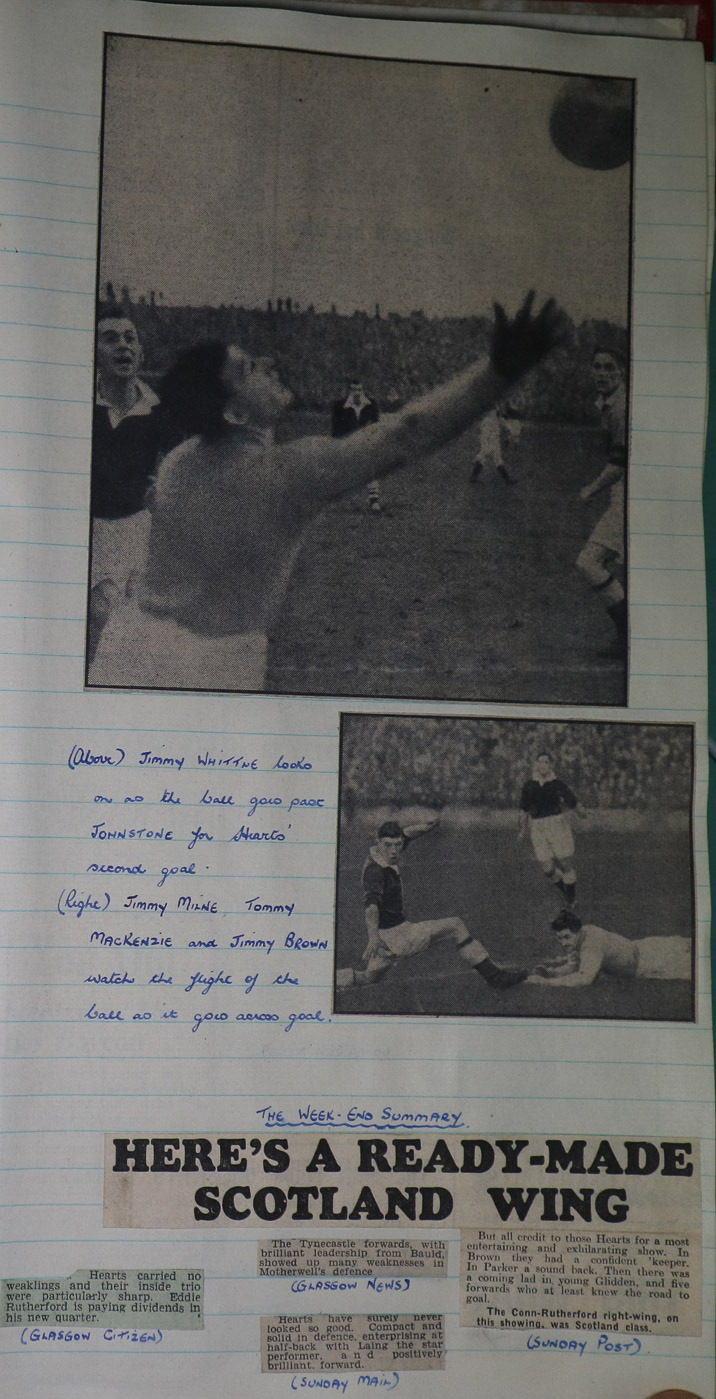 (Above) Jimmy WHITTLE looks
on as the ball goes past
JOHNSTONE for Hearts'
second goal.
(Right) Jimmy MILNE, Tommy
MACKENZIE and Jimmy BROWN
watch the flight of the
ball as it goes across goal.
THE WEEK-END SUMMARY
HERE'S A READY-MADE
SCOTLAND WING
Hearts carried no
weaklings and their inside trio
were particularly sharp. Eddie
Rutherford is paying dividends in
his new quarter.
(GLASGOW CITIZEN)
The Tynecastle forwards, with
brilliant leadership from Bauld,
showed up many weaknesses in
Motherwell's defence
(GLASGOW NEWS)
Hearts have surely never
looked so good. Compact and
solid in defence, enterprising at
half-back with Laing the star
performer, and positively
brilliant, forward.
(SUNDAY MAIL)
But all credit to those Hearts for a most
entertaining and exhilarating show. In
Brown they had a confident 'keeper.
In Parker a sound back. Then there was
a coming lad in young Glidden, and five
forwards who at least knew the road to
goal.
The Conn-Rutherford right-wing, on
this showing, was Scotland class.
(SUNDAY POST)